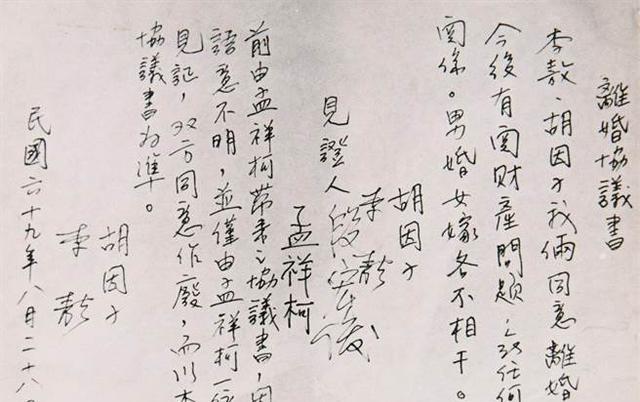 離婚協議書
李敖、胡因子我倆同意離婚
今後有関財産問題之改任何
関係。男婚女嫁各不相干。
胡因子
李敖
見證人段宏俊
孟祥柯
前由孟祥柯帶來之協議書，因
語意不明，並僅由孟祥柯一
見証，双方同意作廢，而以本
協議書為準。
胡因子
李敖
民國六十九年八月二十八